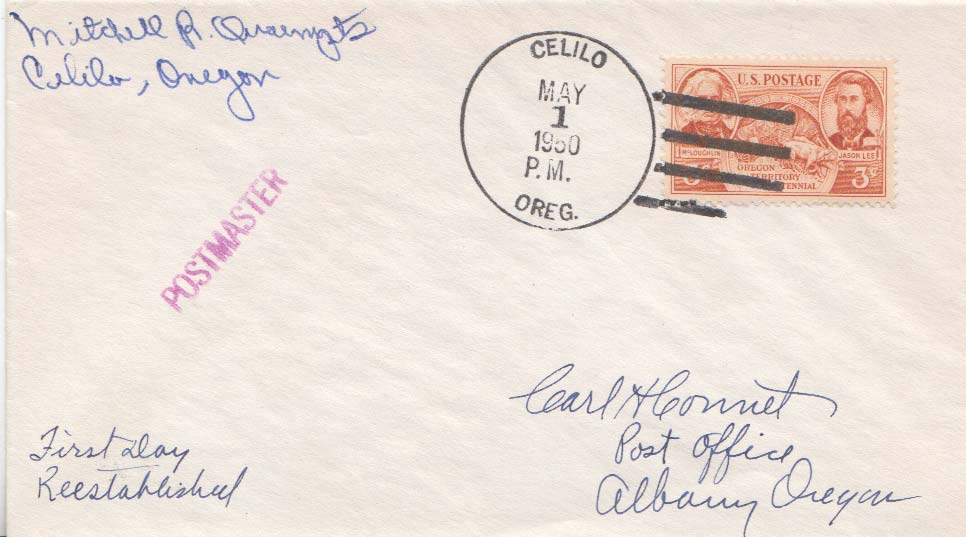 Mitchell R.
Celilo, Oregon
CELILO
MAY
1
1950
P.M.
OREG.
U.S. POSTAGE
McLOUGHLIN
JASON LEE
OREGON
TERRITORY
CENTENNIAL
3¢
3¢
POSTMASTER
Carl H Connet
Post Office
Albany Oregon
First Day
Reestablished